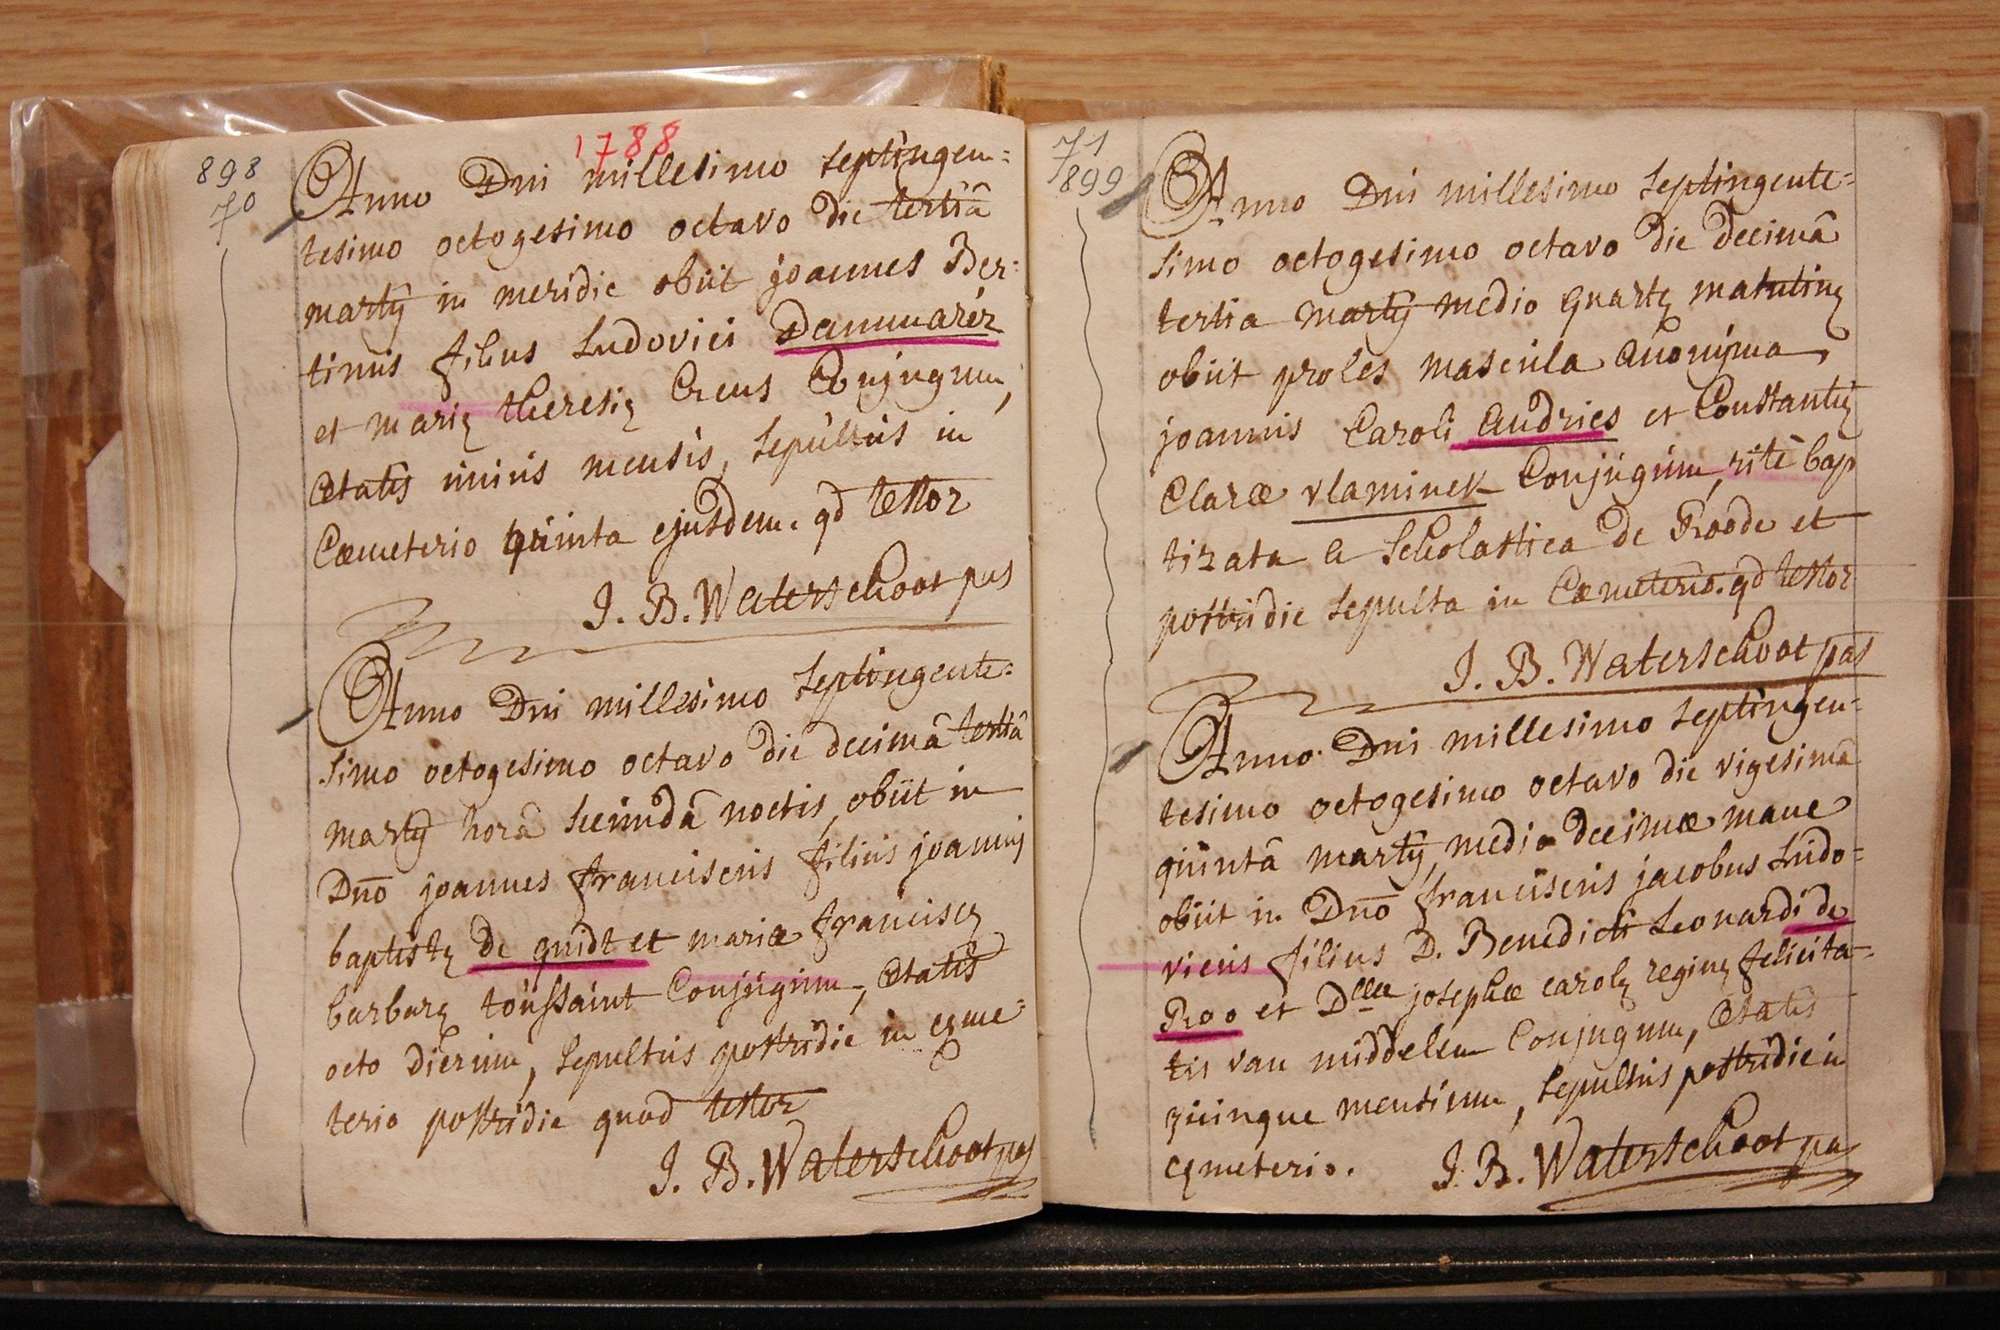 1788
898
70
Anno Dni millesimo septingen=
tesimo octogesimo octavo die tertiâ
martÿ in meridie obiit joannes Ber=
tinus filius Ludovici Dammarér
et marię theresię Creus Conjugum,
ætatis unius mensis, sepultus in
Cæmeterio quinta ejusdem. qd testor
J. B. Waterschoot pas
Anno Dni millesimo septingente=
simo octogesimo octavo die decimâ tertiâ
martÿ horâ secundâ noctis, obiit in
Dno joannes franciscus filius joannis
baptistę de quidt et mariæ franciscę
barbarę toussaint Conjugum, ætatis
octo dierum, sepultus postridie in cęme=
terio postridie quod testor
J. B. Waterschoot pas
71
899
Anno Dni millesimo septingente=
simo octogesimo octavo die decimâ
tertia martÿ medio quartę matutinę
obiit proles mascula anonÿma,
joannis Caroli andries et Constantię
Claræ vlaminck Conjugum, ritè bap
tizata a scholastica de Roode et
postridie sepulta in Cæmeterio. qd testor
J. B. Waterschoot pas
Anno Dni millesimo septingen=
tesimo octogesimo octavo die vigesimâ
quintâ martÿ, media decimæ mane
obiit in Dno franciscus jacobus Ludo=
vicus filius D. Benedicti Leonardi de
Roo et Dllæ josephæ carolę reginę felicita=
tis van middelem Conjugum, ætatis
quinque mensium, sepultus postridie in
cęmeterio. J. B. Waterschoot pas